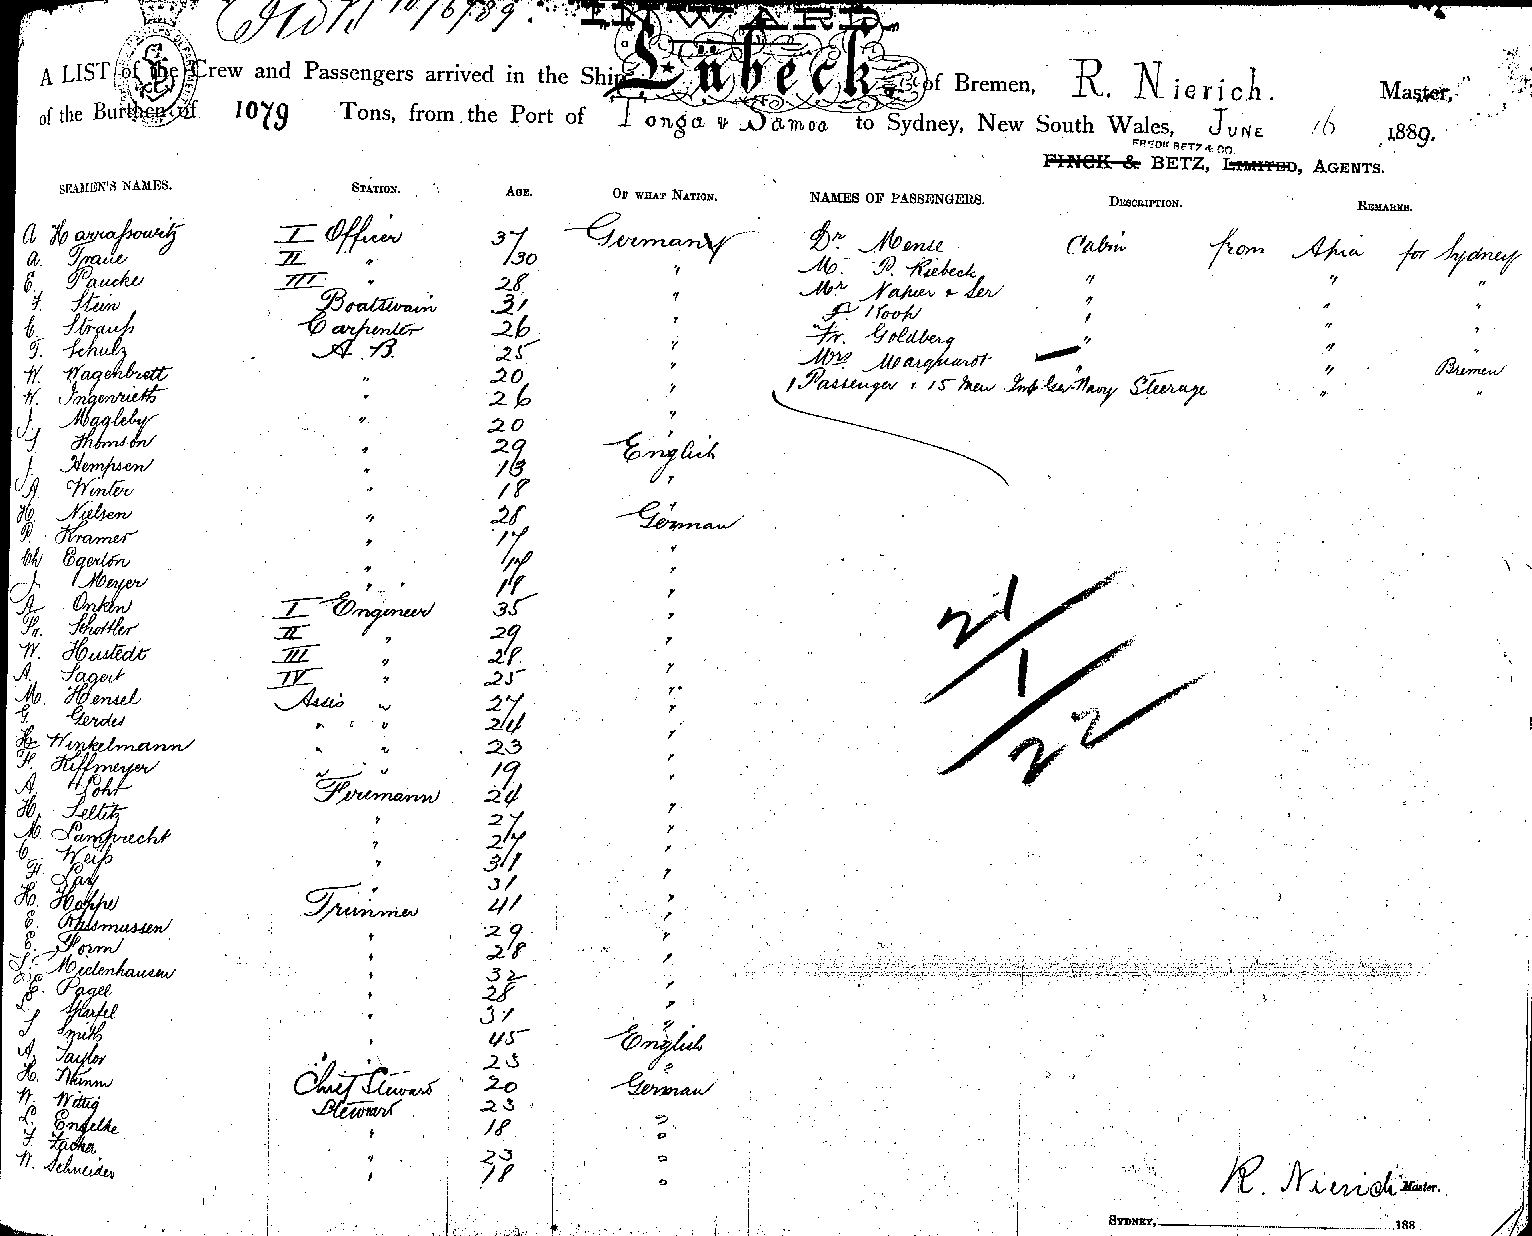 INWARD.
A LIST of the Crew and Passengers arrived in the Ship Lübeck. of Bremen, R. Nierich. Master,
of the Burthen of 1079 Tons, from the Port of Tonga & Samoa to Sydney, New South Wales, JUNE 16 1889.
FREDK BETZ & CO.
FINCK & BETZ, LIMITED, AGENTS.
SEAMEN'S NAMES. STATION. AGE. OF WHAT NATION. NAMES OF PASSENGERS. DESCRIPTION. REMARKS.
A Harrassowitz I Officer 37 Germany Dr. Mense Cabin from Apia for Sydney
A. Traue II " 30 " M. P. Riebeck " " "
E. Paucke III " 28 " Mr Napier & Ser " " "
F. Stein Boatswain 31 " Koop " " "
C. Strauß Carpenter 26 " Fr. Goldberg " " "
F. Schulz A.B. 25 " Mrs Marquardt " " Bremen
W. Wagenbrett " 20 " 1 Passenger & 15 Men Imp Ger Navy Steerage " "
W. Ingenrieth " 26 "
J. Magleby " 20 "
J Thomson " 29 English
J. Hempsen " 18 "
A. Winter " 18 "
H. Nielsen " 28 German
P. Kramer " 17 "
Ch Egerton " 17 "
J. Meyer " 18 "
A. Onken I Engineer 35 "
Fr. Schottler II " 29 "
W. Hustedt III " 28 "
A. Sagert IV " 25 "
M. Hensel Assis " 27 "
G. Gerdes " " 24 "
H. Winkelmann " " 23 "
H. Kiffmeyer " " 19 "
A. Lohr Firemann 24 "
H. Seltitz " 27 "
M. Lamprecht " 27 "
C. Weiß " 31 "
F. Lay " 31 "
H. Hoppe Trimmer 41 "
E. Rasmussen " 29 "
E. Form " 28 "
Medenhausen " 32 "
E. Pagel " 28 "
Scharfel " 31 "
J Smith " 45 English
A. Taylor " 23 "
H. Wumm Chief Steward 20 German
W. Wittig Steward 23 "
L. Engelke " 18 "
F. Zacher " 23 "
W. Schneider " 18 "
21
1
22
R. Nierich Master.
SYDNEY, 188